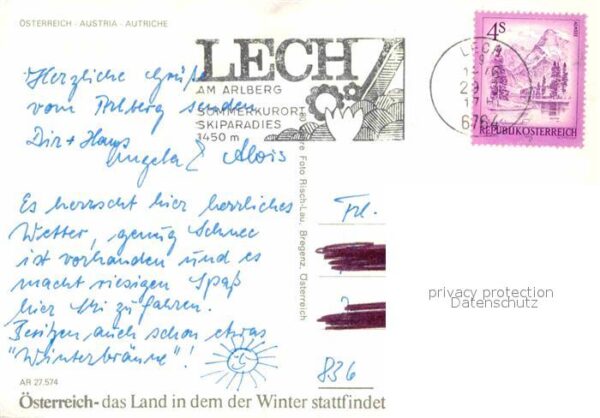 ÖSTERREICH - AUSTRIA - AUTRICHE
LECH
AM ARLBERG
SOMMERKURORT
SKIPARADIES
1450 m
LECH
29
17
6764
4S
REPUBLIK ÖSTERREICH
Herzliche Grüße
vom Arlberg senden
Dir + Hans
Angela & Alois
Es herrscht hier herrliches
Wetter, genug Schnee
ist vorhanden und es
macht riesigen Spaß
hier Ski zu fahren.
Besitzen auch schon etwas
"Winterbräune"!
Foto Risch-Lau, Bregenz, Österreich
Frl.
836
privacy protection
Datenschutz
AR 27.574
Österreich - das Land in dem der Winter stattfindet